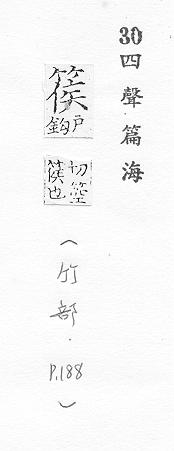 30四聲篇海
篌
戶
鈎
切箜
篌也
(竹部.P.188)